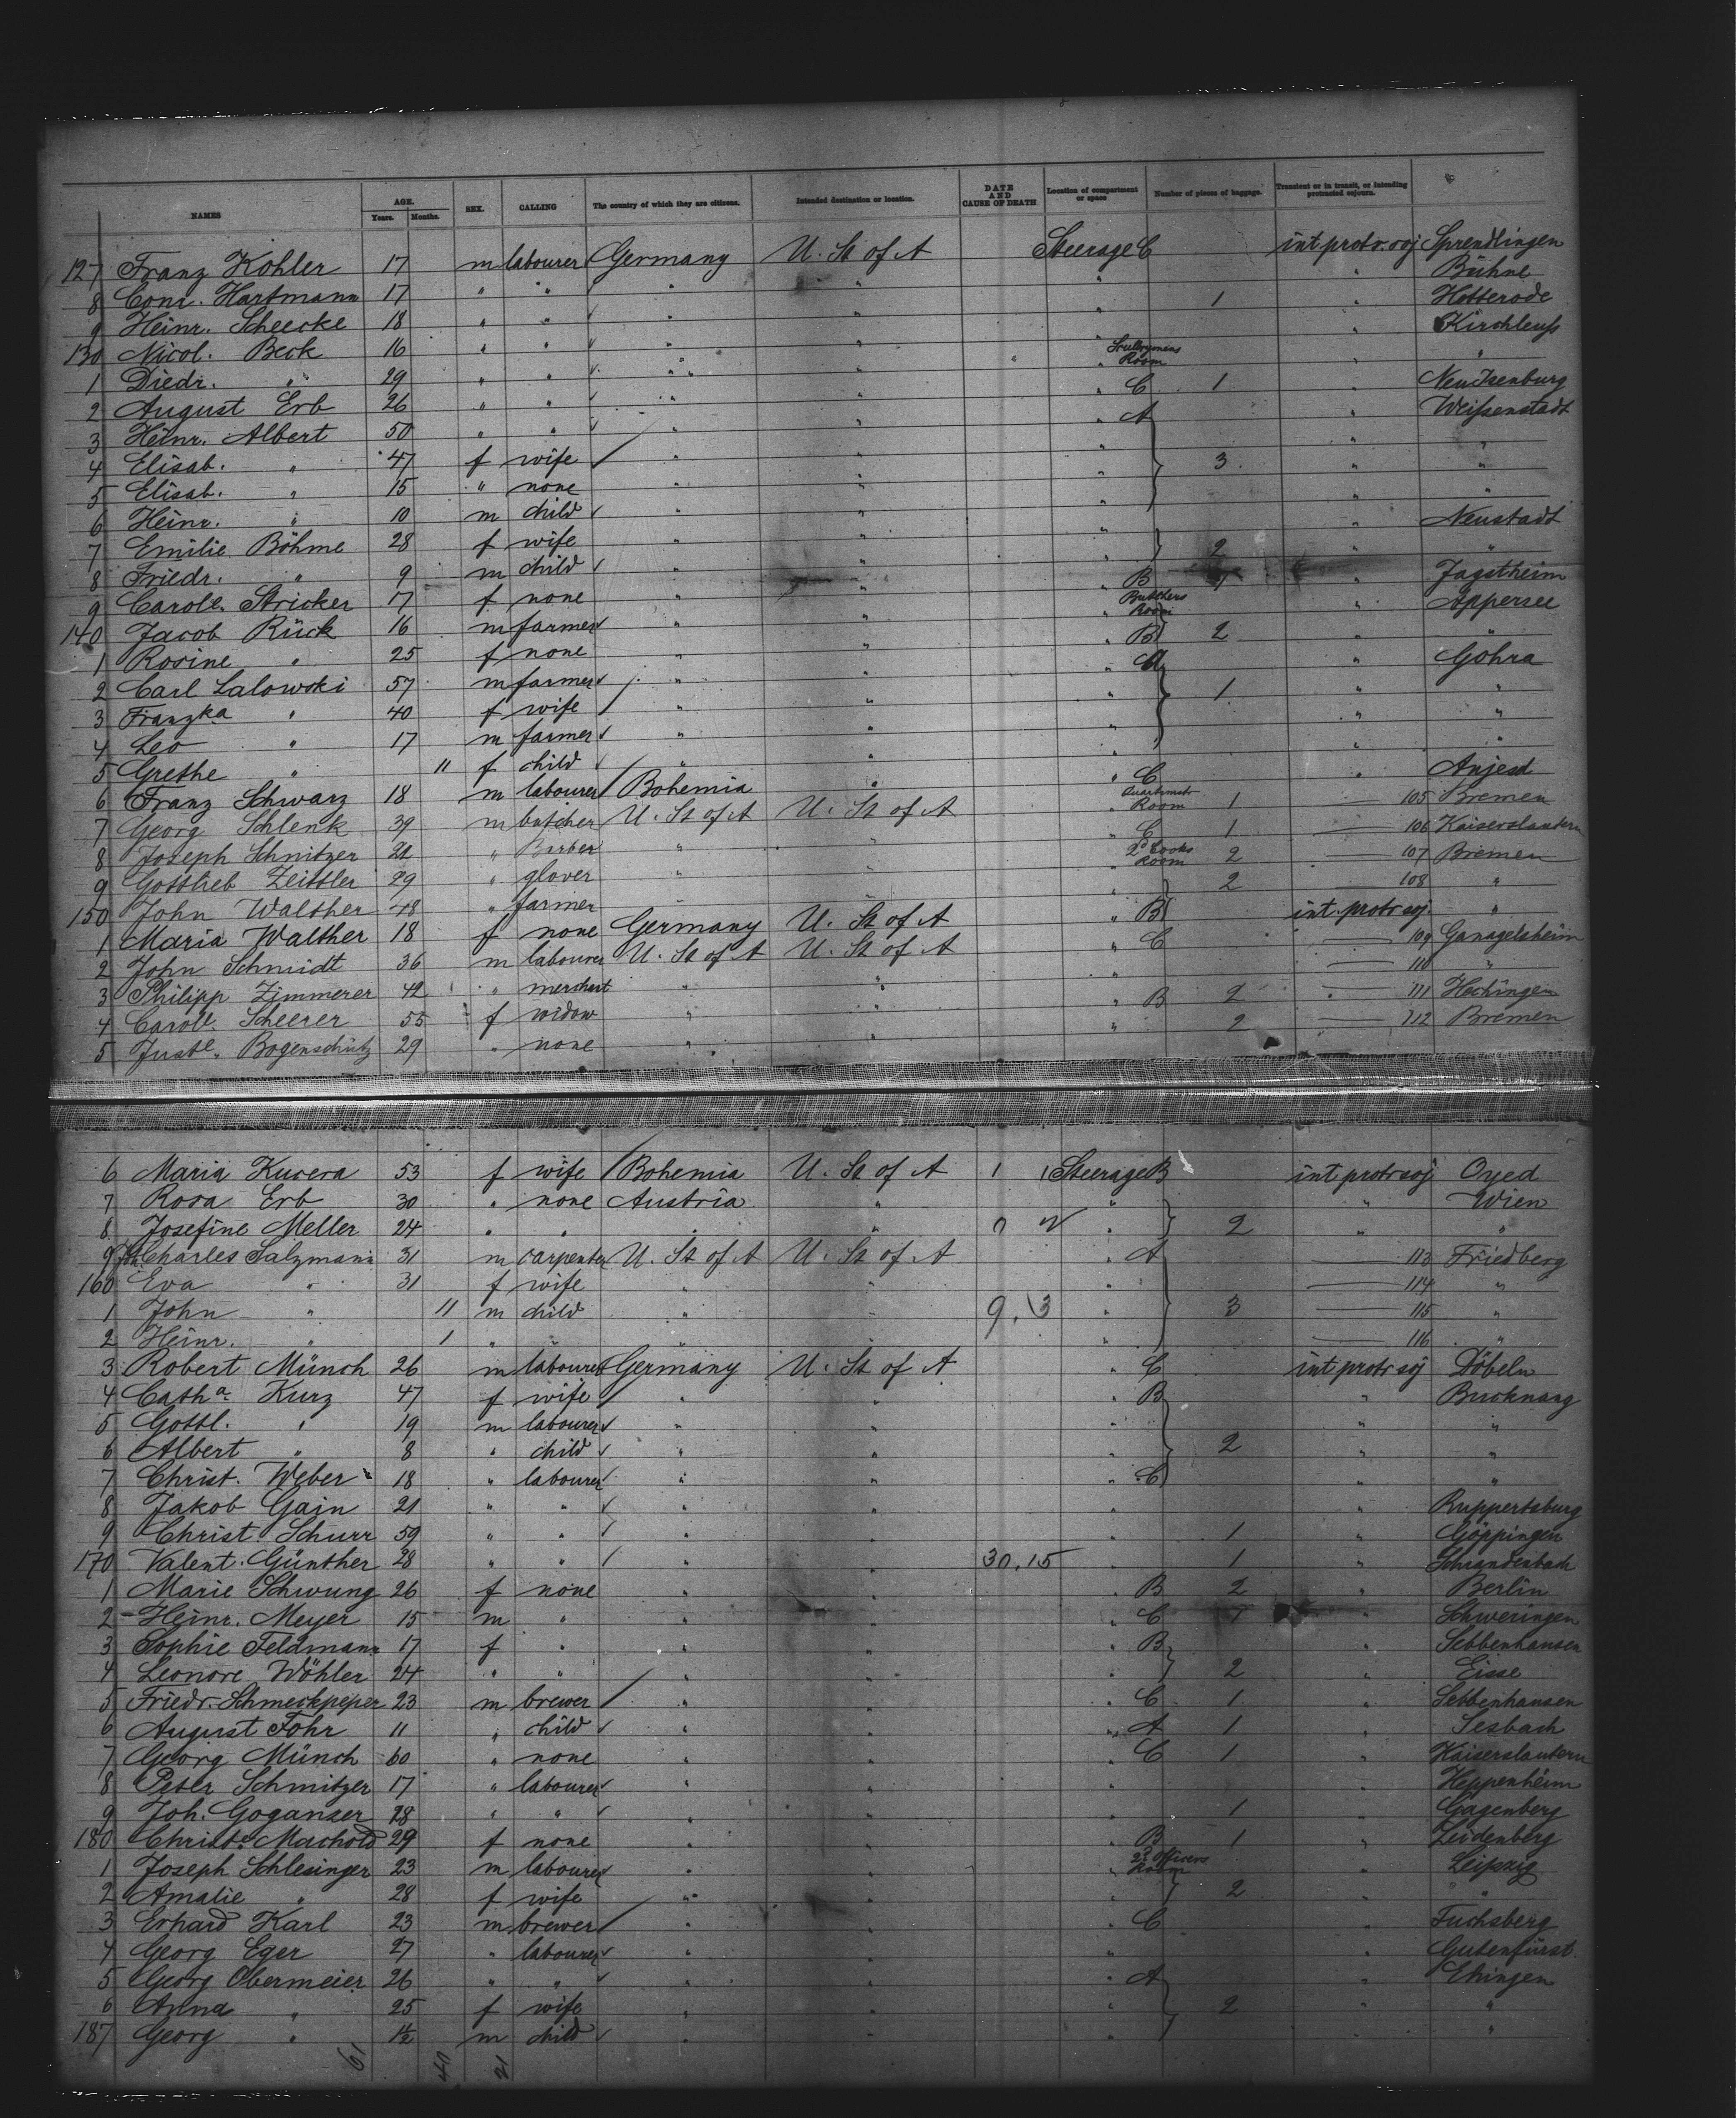 NAMES AGE. Years. Months. SEX. CALLING The country of which they are citizens. Intended destination or location. DATE AND CAUSE OF DEATH Location of compartment or space Number of pieces of baggage. Transient or in transit, or intending protracted sojourn.
127 Franz Köhler 17 m labourer Germany U. St of A Steerage C int protr. soj Sprendlingen
8 Conr. Hartmann 17 " " " " " " Bühne
9 Heinr. Scheecke 18 " " " " " 1 " Hötterode
130 Nicol. Beck 16 " " " " " " Kirchleuss
1 Diedr. " 29 " " " " " Room " "
2 August Erb 26 " " " " " C 1 " Neu Isenburg
3 Heinr. Albert 50 " " " " " A " Weissenstadt
4 Elisab. " 47 f wife " " " 3 " "
5 Elisab. " 15 " none " " " " "
6 Heinr. " 10 m child " " " " "
7 Emilie Böhme 28 f wife " " " 2 " Neustadt
8 Friedr. " 9 m child " " " " "
9 Carole. Stricker 17 f none " " " B 1 " Jagstheim
140 Jacob Rück 16 m farmer " " " Butchers Room 2 " Appersee
1 Rosine " 25 f none " " " B " "
2 Carl Lalowski 57 m farmer " " " 1 " Göhra
3 Franzka " 40 f wife " " " " "
4 Leo " 17 m farmer " " " " "
5 Grethe " 11 f child " " " " "
6 Franz Schwarz 18 m labourer Bohemia " " C " Anjesd
7 Georg Schlenk 39 m butcher U. St of A U. St of A " Room 1 105 Bremen
8 Joseph Schnitzer 21 " Barber " " " C 1 106 Kaiserslautern
9 Gottlieb Zeittler 29 " glover " " 2d Cooks Room 2 107 Bremen
150 John Walther 48 " farmer 2 108 "
1 Maria Walther 18 f none Germany U. St of A " B int. protr soj. "
2 John Schmidt 36 m labourer U. St of A U. St of A " C 109 Ganagelsheim
3 Philipp Zimmerer 42 " merchant " " " 110 "
4 Carole. Scheerer 55 f widow " " " B 2 111 Hechingen
5 Juste. Bogenschütz 29 " none " " " 2 112 Bremen
6 Maria Kucera 53 f wife Bohemia U. St of A Steerage B int protr soj Oyed
7 Rosa Erb 30 " none Austria " " " Wien
8 Josefine Meller 24 " " " " " 2 " "
9 Charles Salzmann 31 m carpenter U. St of A U. St of A " A 113 Friedberg
160 Eva " 31 f wife " " " 114 "
1 John " 11 m child " " 9.13 " 3 115 "
2 Heinr. " 1 " " " " " 116 "
3 Robert Münch 26 m labourer Germany U. St of A " C int protr soj Döbeln
4 Catha. Kurz 47 f wife " " " B " Bucknang
5 Gottl. " 19 m labourer " " " " "
6 Albert " 8 " child " " " 2 " "
7 Christ. Weber 18 " labourer " " " C " "
8 Jakob Gain 21 " " " " " " Ruppertsburg
9 Christ. Schurr 59 " " " " " 1 " Göppingen
170 Valent. Günther 28 " " " " 30.15 " 1 " Schrandenbach
1 Marie Schwung 26 f none " " " B 2 " Berlin
2 Heinr. Meyer 15 m " " " " C 1 " Schweringen
3 Sophie Feldmann 17 f " " " " B " Sebbenhausen
4 Leonore Wöhler 24 " " " " " 2 " Eisse
5 Friedr. Schmeckpeper 23 m brewer " " " C 1 " Sebbenhausen
6 August Fohr 11 " child " " " A 1 " Sesbach
7 Georg Münch 60 " none " " " C 1 " Kaiserslautern
8 Peter Schmitzer 17 " labourer " " " " Heppenheim
9 Joh. Goganser 28 " " " " " 1 " Gagenberg
180 Christe. Machold 29 f none " " " B 1 " Zeidenberg
1 Joseph Schlesinger 23 m labourer " " " 2d Officers Room " Leipzig
2 Amalie " 28 f wife " " " 2 " "
3 Erhard Karl 23 m brewer " " " C " Fuchsberg
4 Georg Eger 27 " labourer " " " " Gutenfürst
5 Georg Obermeier 26 " " " " " A " Ehingen
6 Anna " 25 f wife " " " 2 " "
187 Georg " 1½ m child " " " " "
61 40 21